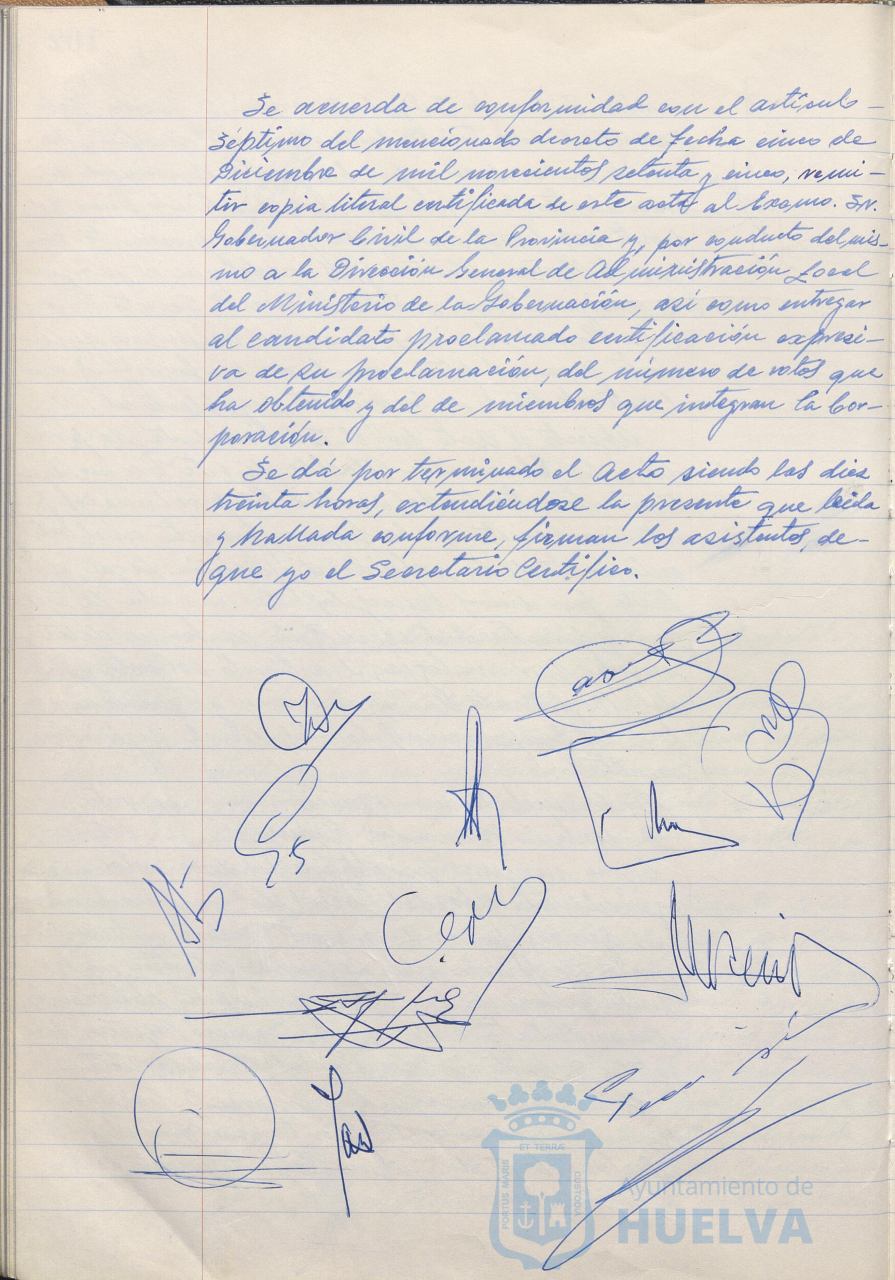 Se acuerda de conformidad con el artículo -
Séptimo del mencionado decreto de fecha cinco de
Diciembre de mil novecientos setenta y cinco, remi-
tir copia literal certificada de este acta al Excmo. Sr.
Gobernador Civil de la Provincia y, por conducto del mis-
mo a la Dirección General de Administración Local
del Ministerio de la Gobernación, así como entregar
al candidato proclamado certificación expresi-
va de su proclamación, del número de votos que
ha obtenido y del de miembros que integran la Cor-
poración.
Se dá por terminado el Acto siendo las diez
treinta horas, extendiéndose la presente que leida
y hallada conforme, firman los asistentes, de-
que yo el Secretario Certifico.
ET TERRÆ
PORTUS MARIS
CUSTODIA
Ayuntamiento de
HUELVA